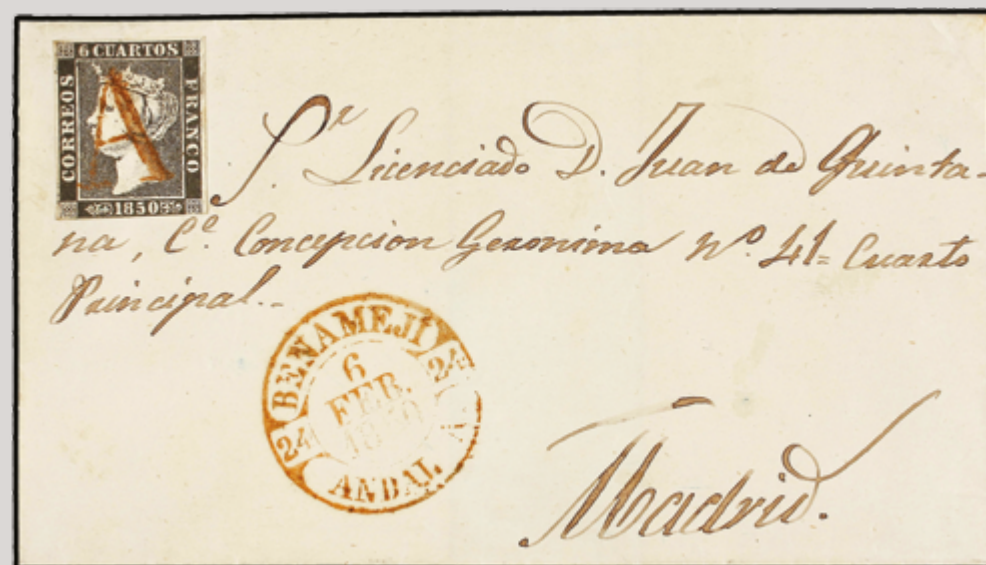 6 CUARTOS
CORREOS
FRANCO
1850
A
Sr. Licenciado D. Juan de Quinta-
na, Ce. Concepcion Geronima nº. 41= Cuarto
Principal.-
BENAMEJI
24
24
6
FEB.
1850
ANDAL. A.
Madrid.